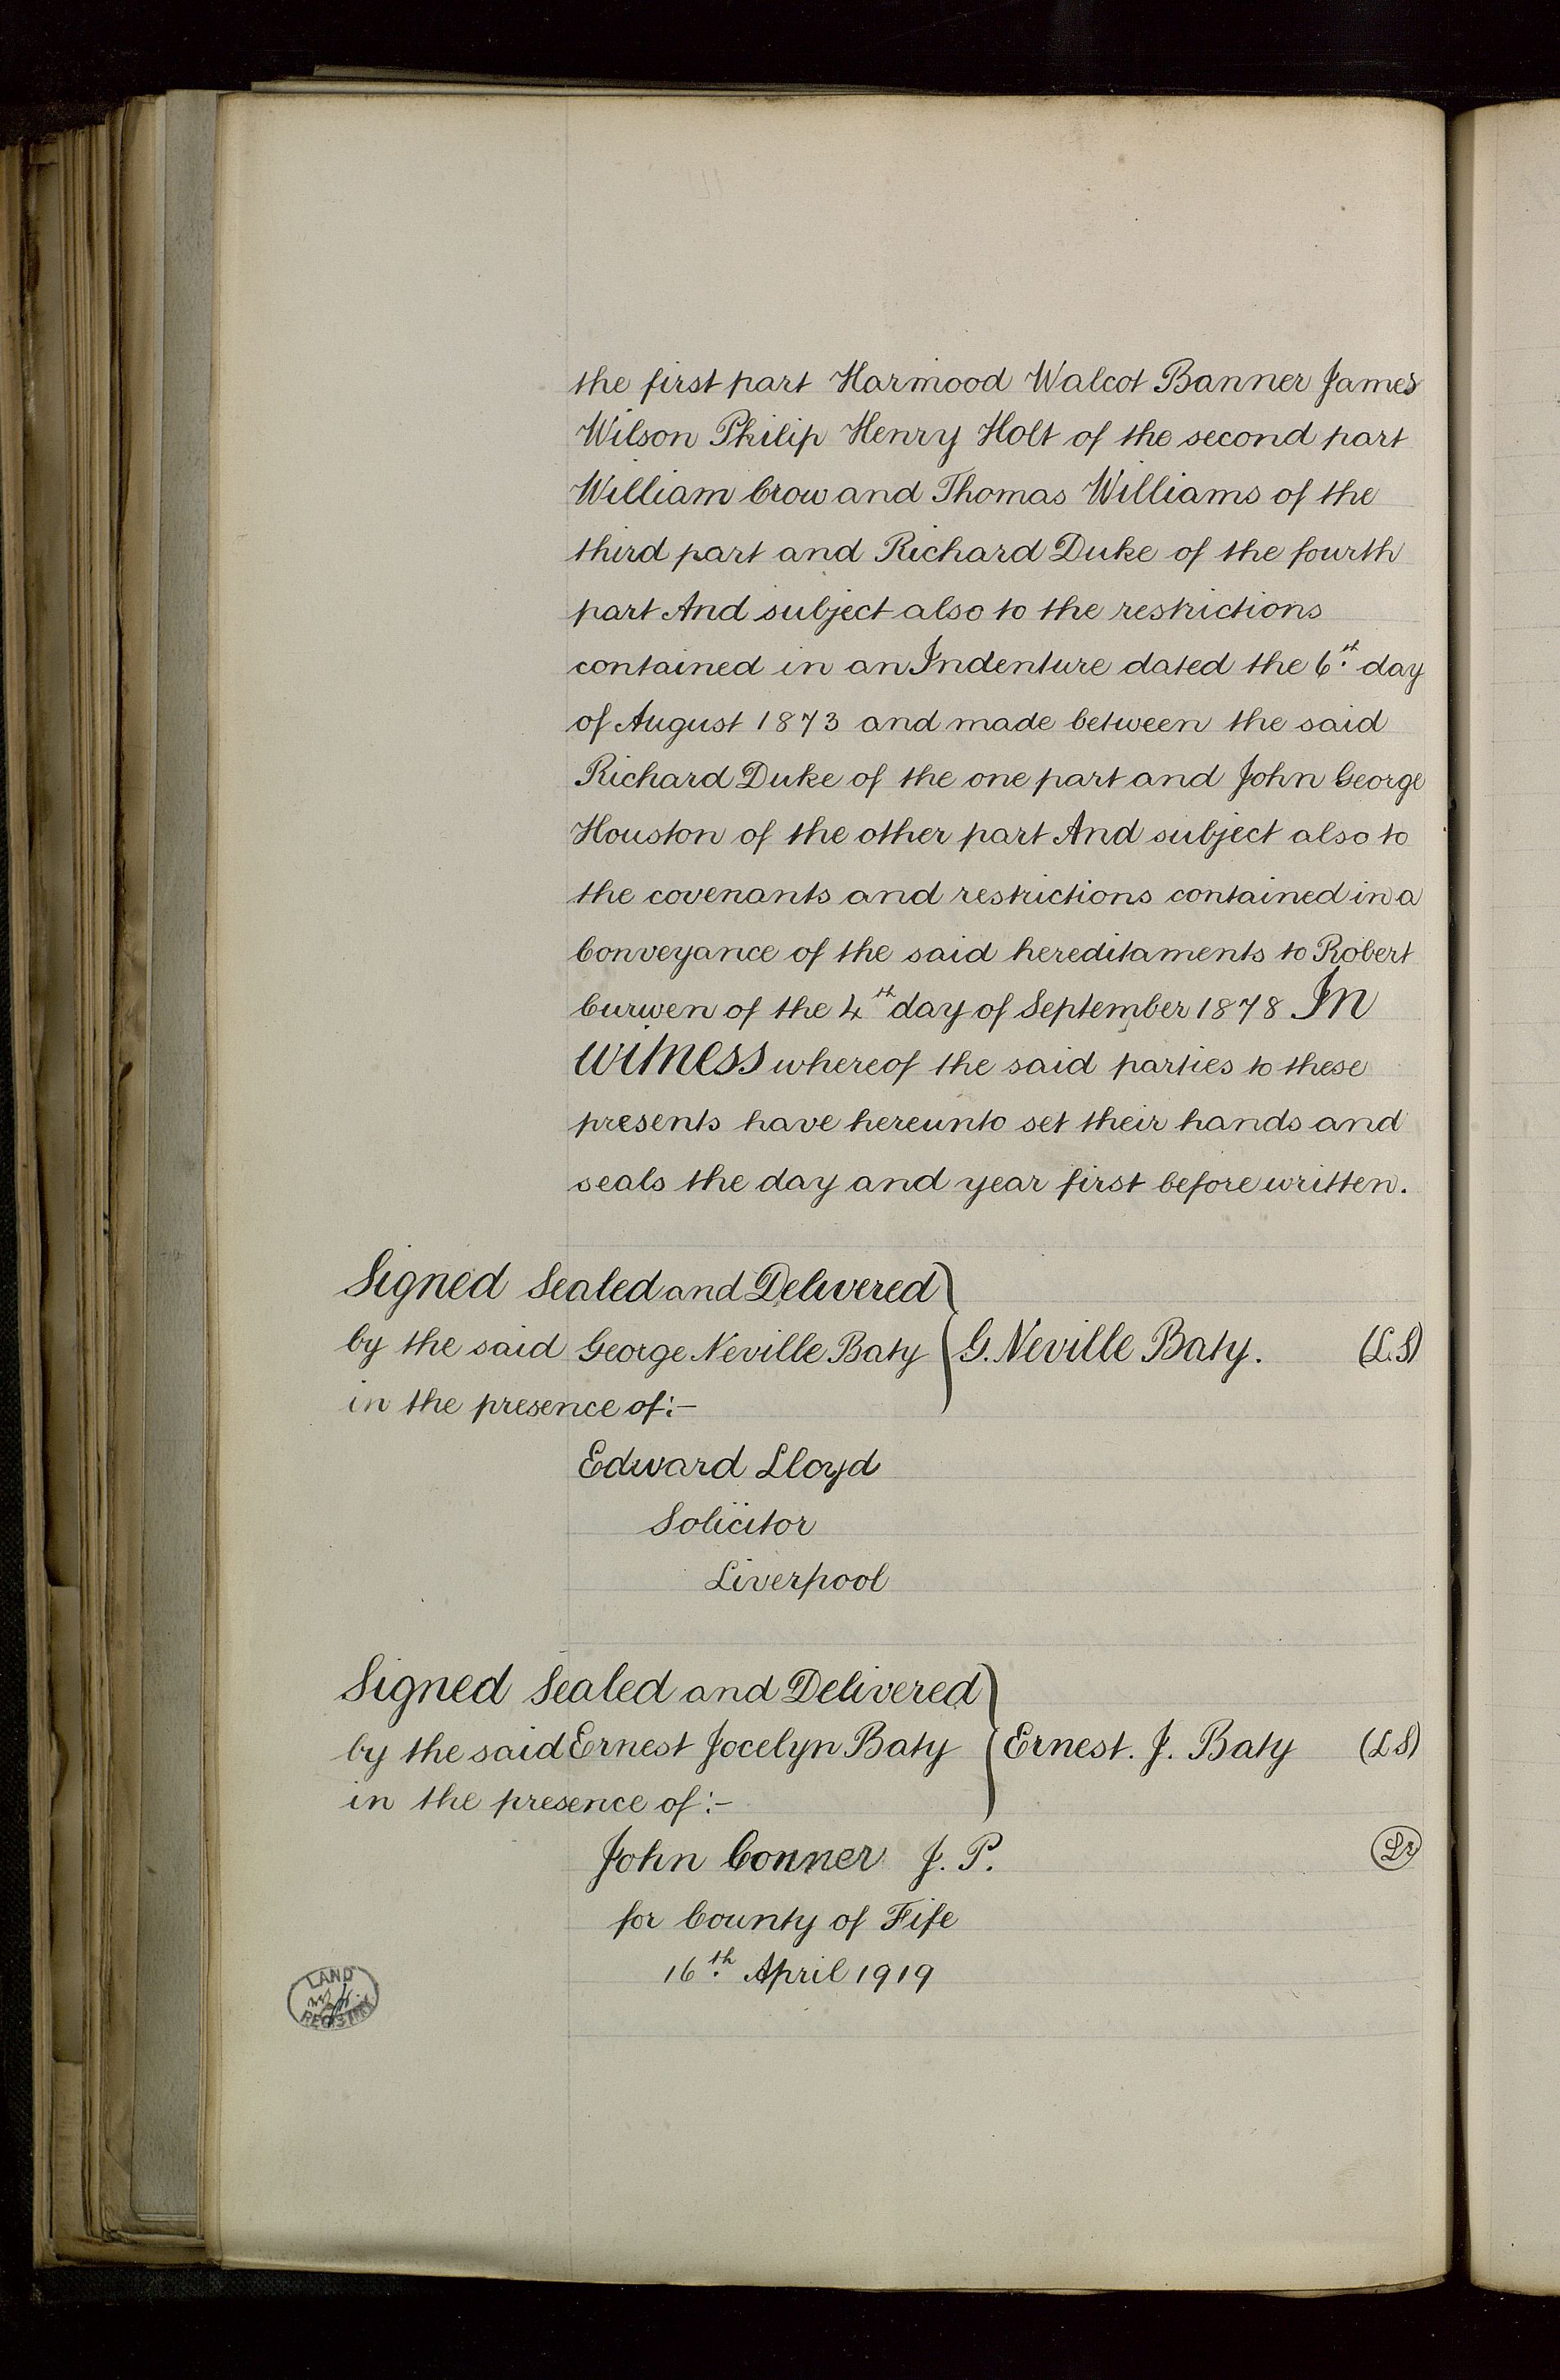 the first part Harmood Walcot Banner James
Wilson Philip Henry Holt of the second part
William Crow and Thomas Williams of the
third part and Richard Duke of the fourth
part And subject also to the restrictions
contained in an Indenture dated the 6th day
of August 1873 and made between the said
Richard Duke of the one part and John George
Houston of the other part And subject also to
the covenants and restrictions contained in a
Conveyance of the said hereditaments to Robert
Curwen of the 4th day of September 1878 In
Witness whereof the said parties to these
presents have hereunto set their hands and
seals the day and year first before written.
Signed Sealed and Delivered
by the said George Neville Baty G. Neville Baty. (L.S)
in the presence of:-
Edward Lloyd
Solicitor
Liverpool
Signed Sealed and Delivered
by the said Ernest Jocelyn Baty Ernest. J. Baty (LS)
in the presence of:-
John Conner J. P.
for County of Fife
16th April 1919
LAND
REGISTRY